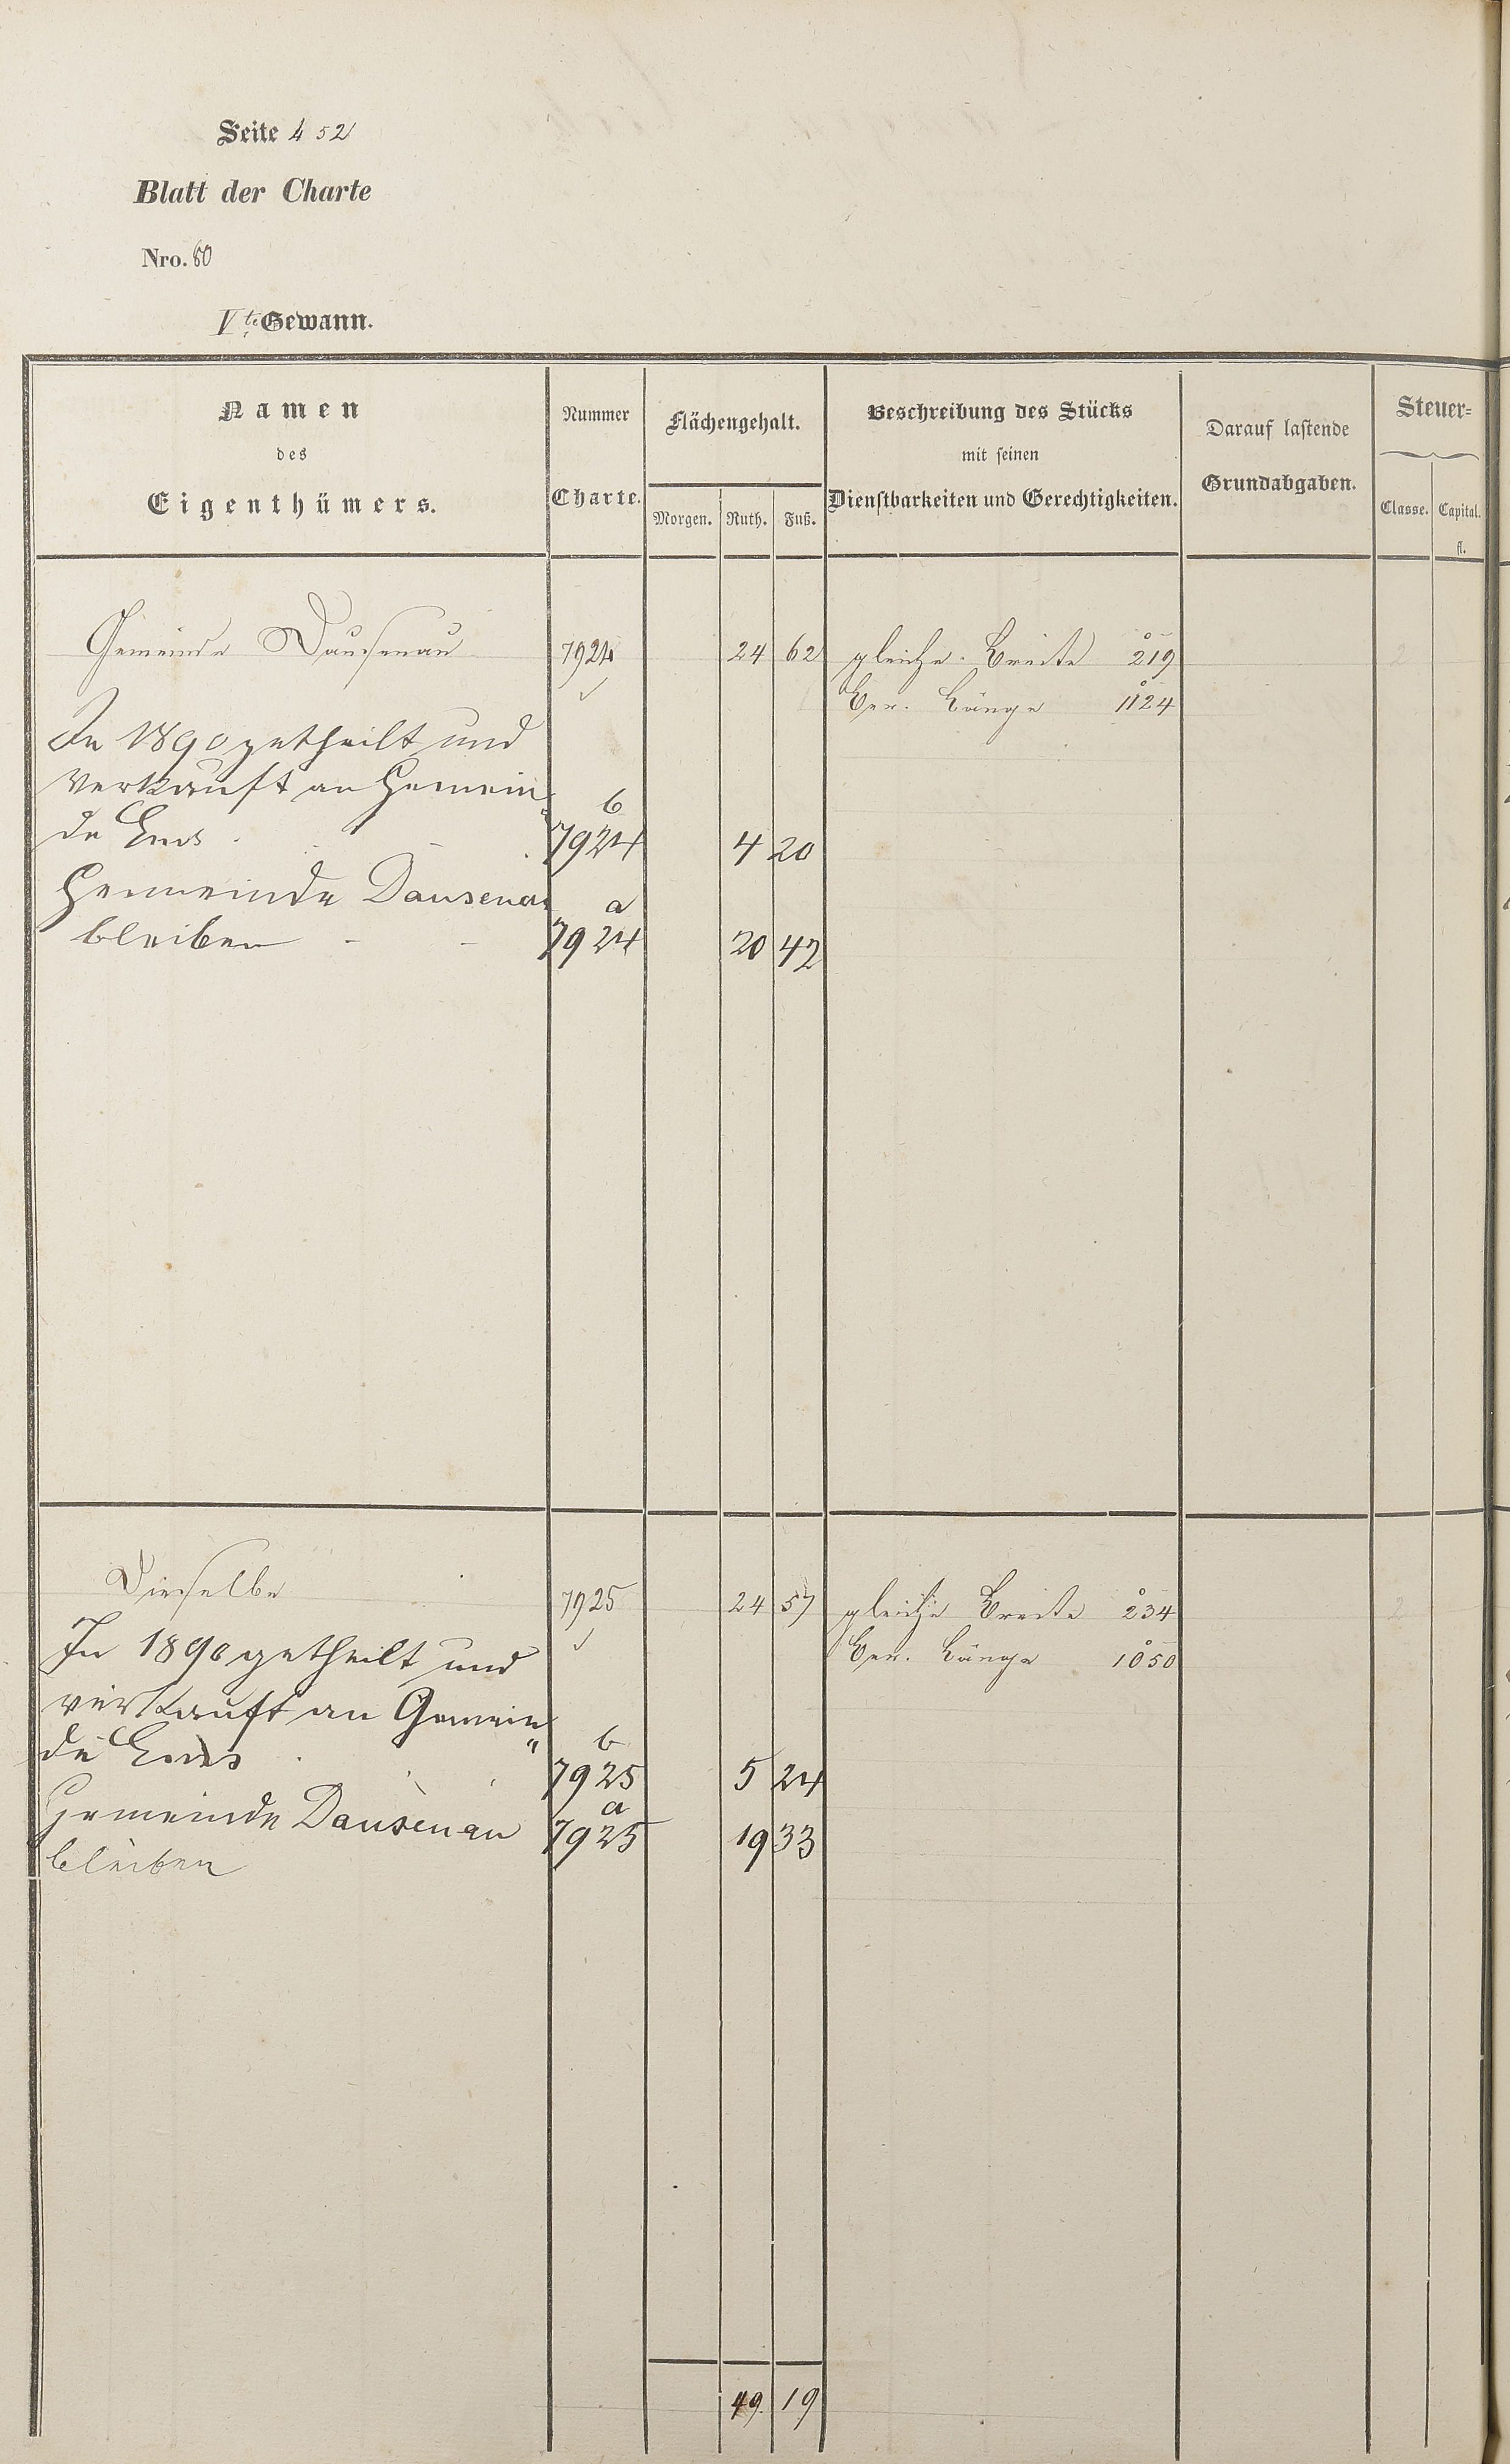 Seite 452
Blatt der Charte
Nro. 60
Vte Gewann.
Namen
des
Eigenthümers.
Nummer
Charte.
Flächengehalt.
Morgen. Ruth. Fuß.
Beschreibung des Stücks
mit seinen
Dienstbarkeiten und Gerechtigkeiten.
Darauf lastende
Grundabgaben.
Steuer=
Classe. Capital.
fl.
Gemeinde Dausenau 7924 24 62 gleiche Breite 219 2
Ber. Länge 1124
In 1890 getheilt und
verkauft an Gemein
de Ems b 7924 4 20
Gemeinde Dausenau a
bleiben - - 7924 20 42
Dieselbe 7925 24 57 gleiche Breite 234 2
Ber. Länge 1050
In 1890 getheilt und
verkauft an Gemein"
de Ems b 7925 5 24
Gemeinde Dausenau a 7925 19 33
bleiben
49 19